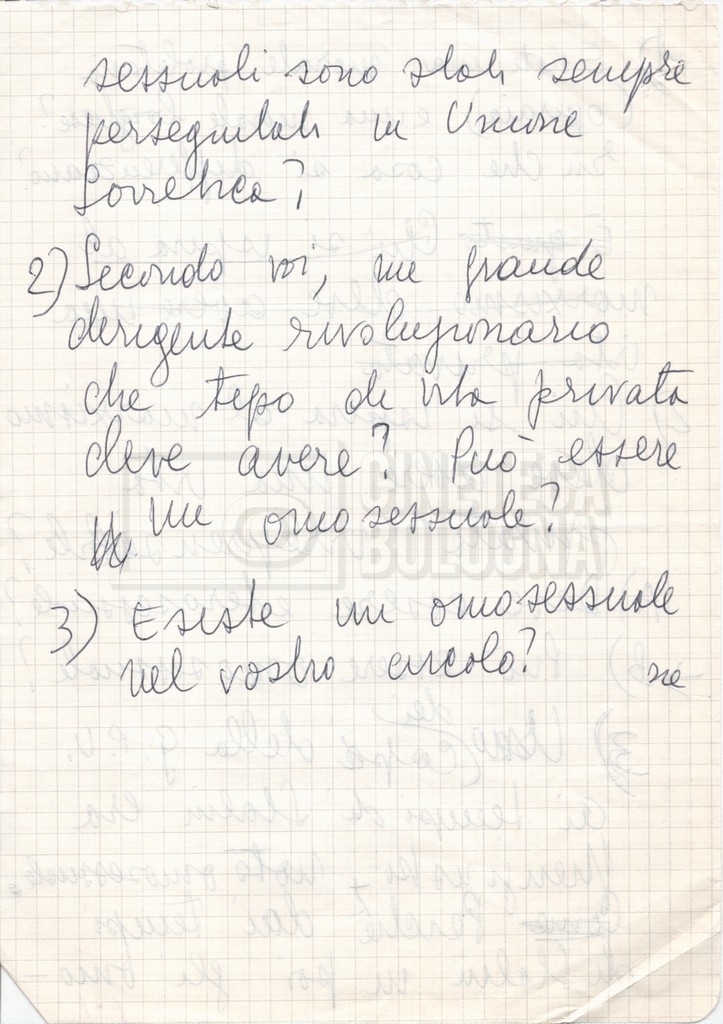 sessuali sono stati sempre
perseguitati in Unione
Sovietica?
2) Secondo voi, un grande
dirigente rivoluzionario
che tipo di vita privata
deve avere? Può essere
un omosessuale?
3) Esiste un omosessuale
nel vostro circolo? se
CINETECA
BOLOGNA